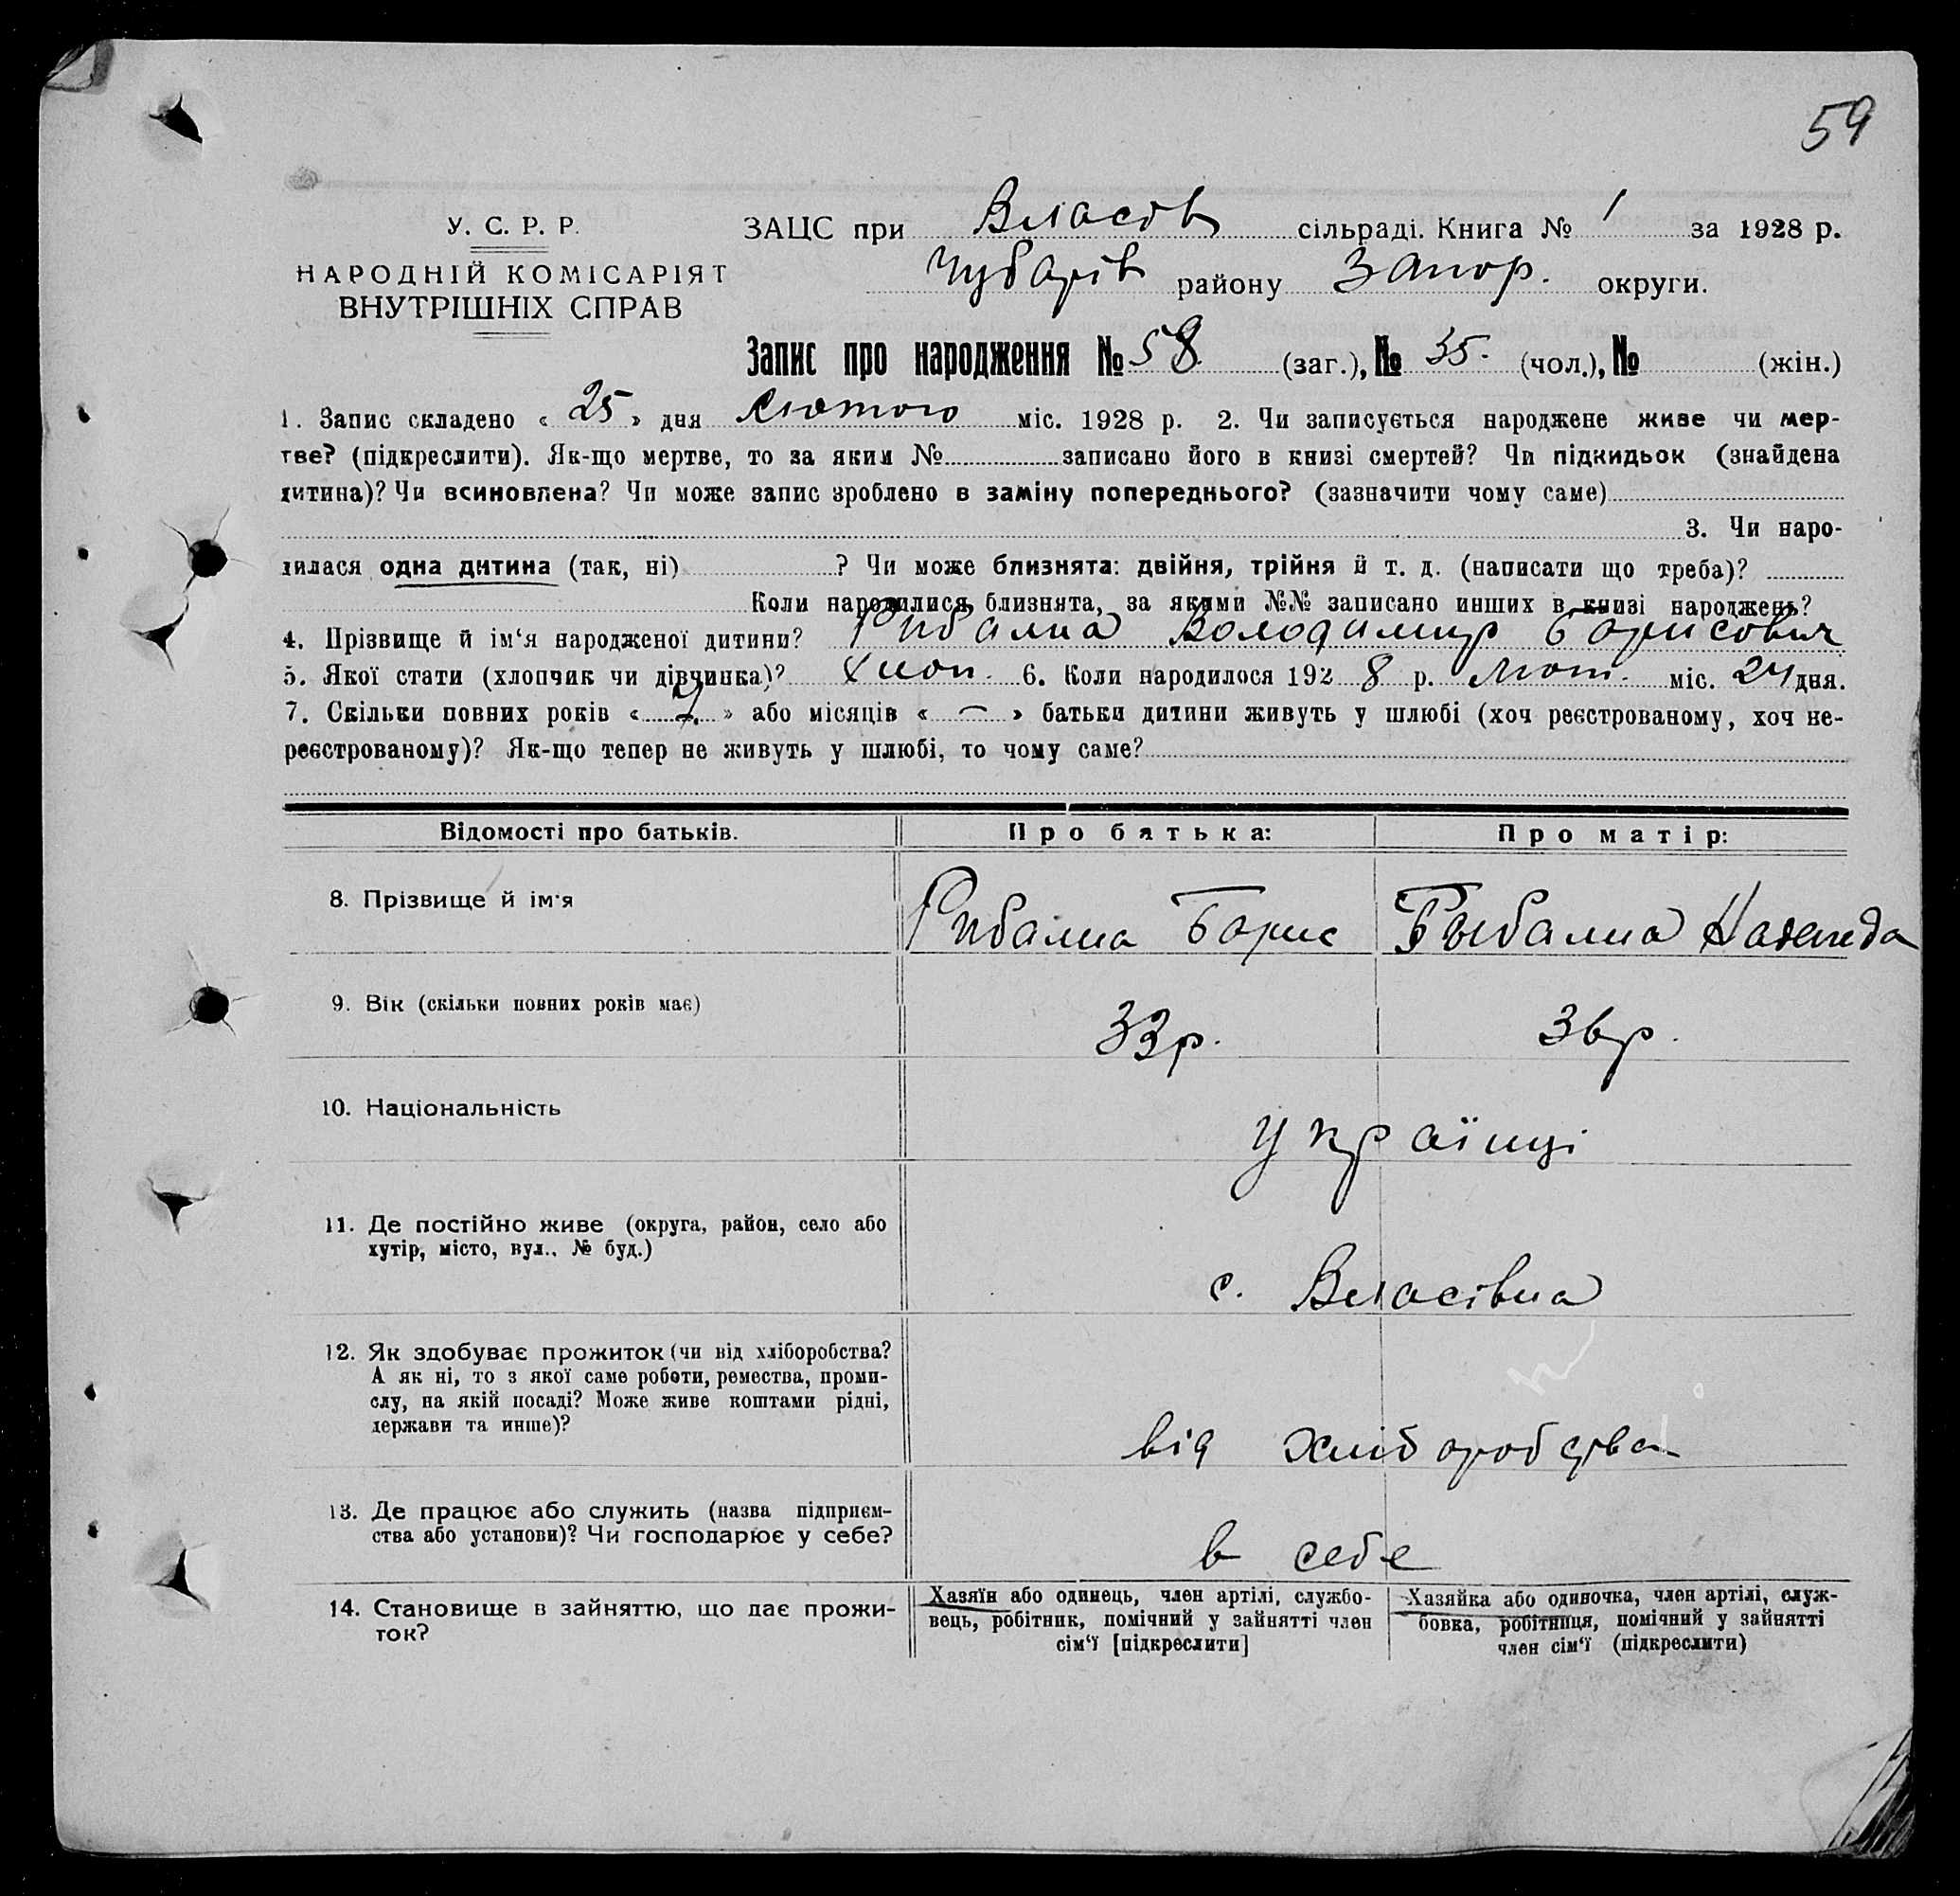 59
У. С. Р. Р.
НАРОДНІЙ КОМІСАРІЯТ
ВНУТРІШНІХ СПРАВ
ЗАЦС при Власов сільраді. Книга № 1 за 1928 р.
Чубарів району Запор. округи.
Запис про народження № 58 (заг.), № 35. (чол.), № (жін.)
1. Запис складено « 25 » дня Лютого міс. 1928 р. 2. Чи записується народжене живе чи мер-
тве? (підкреслити). Як-що мертве, то за яким № записано його в книзі смертей? Чи підкидьок (знайдена
дитина)? Чи всиновлена? Чи може запис зроблено в заміну попереднього? (зазначити чому саме)
3. Чи наро-
дилася одна дитина (так, ні) ? Чи може близнята: двійня, трійня й т. д. (написати що треба)?
Коли народилися близнята, за якими №№ записано инших в книзі народжень?
4. Прізвище й ім‘я народженої дитини? Рибалка Володимир Борисович
5. Якої стати (хлопчик чи дівчинка)? Хлоп. 6. Коли народилося 192 8 р. Лют. міс. 24 дня.
7. Скільки повних років « » або місяців « — » батьки дитини живуть у шлюбі (хоч реєстрованому, хоч не-
реєстрованому)? Як-що тепер не живуть у шлюбі, то чому саме?
Відомості про батьків. Про батька: Про матір:
8. Прізвище й ім'я Рибалка Борис Рыбалка Надежда
9. Вік (скільки повних років має) 33р. 36р.
10. Національність українці
11. Де постійно живе (округа, район, село або
хутір, місто, вул., № буд.)
с. Власівка
12. Як здобуває прожиток (чи від хліборобства?
А як ні, то з якої саме роботи, ремества, проми-
слу, на якій посаді? Може живе коштами рідні,
держави та инше)?
від хліборобства
13. Де працює або служить (назва підприєм-
ства або установи)? Чи господарює у себе?
в себе
14. Становище в зайняттю, що дає прожи-
ток?
Хазяїн або одинець, член артілі, службо-
вець, робітник, помічний у зайнятті член
сім‘ї [підкреслити]
Хазяйка або одиночка, член артілі, служ-
бовка, робітниця, помічний у зайнятті
член сім‘ї (підкреслити)